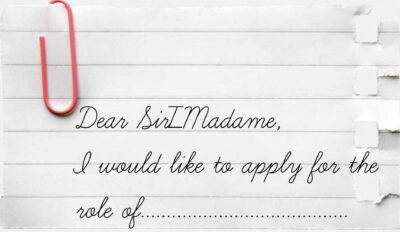 Dear SirIMadame,
I would like to apply for the
role of.........................................